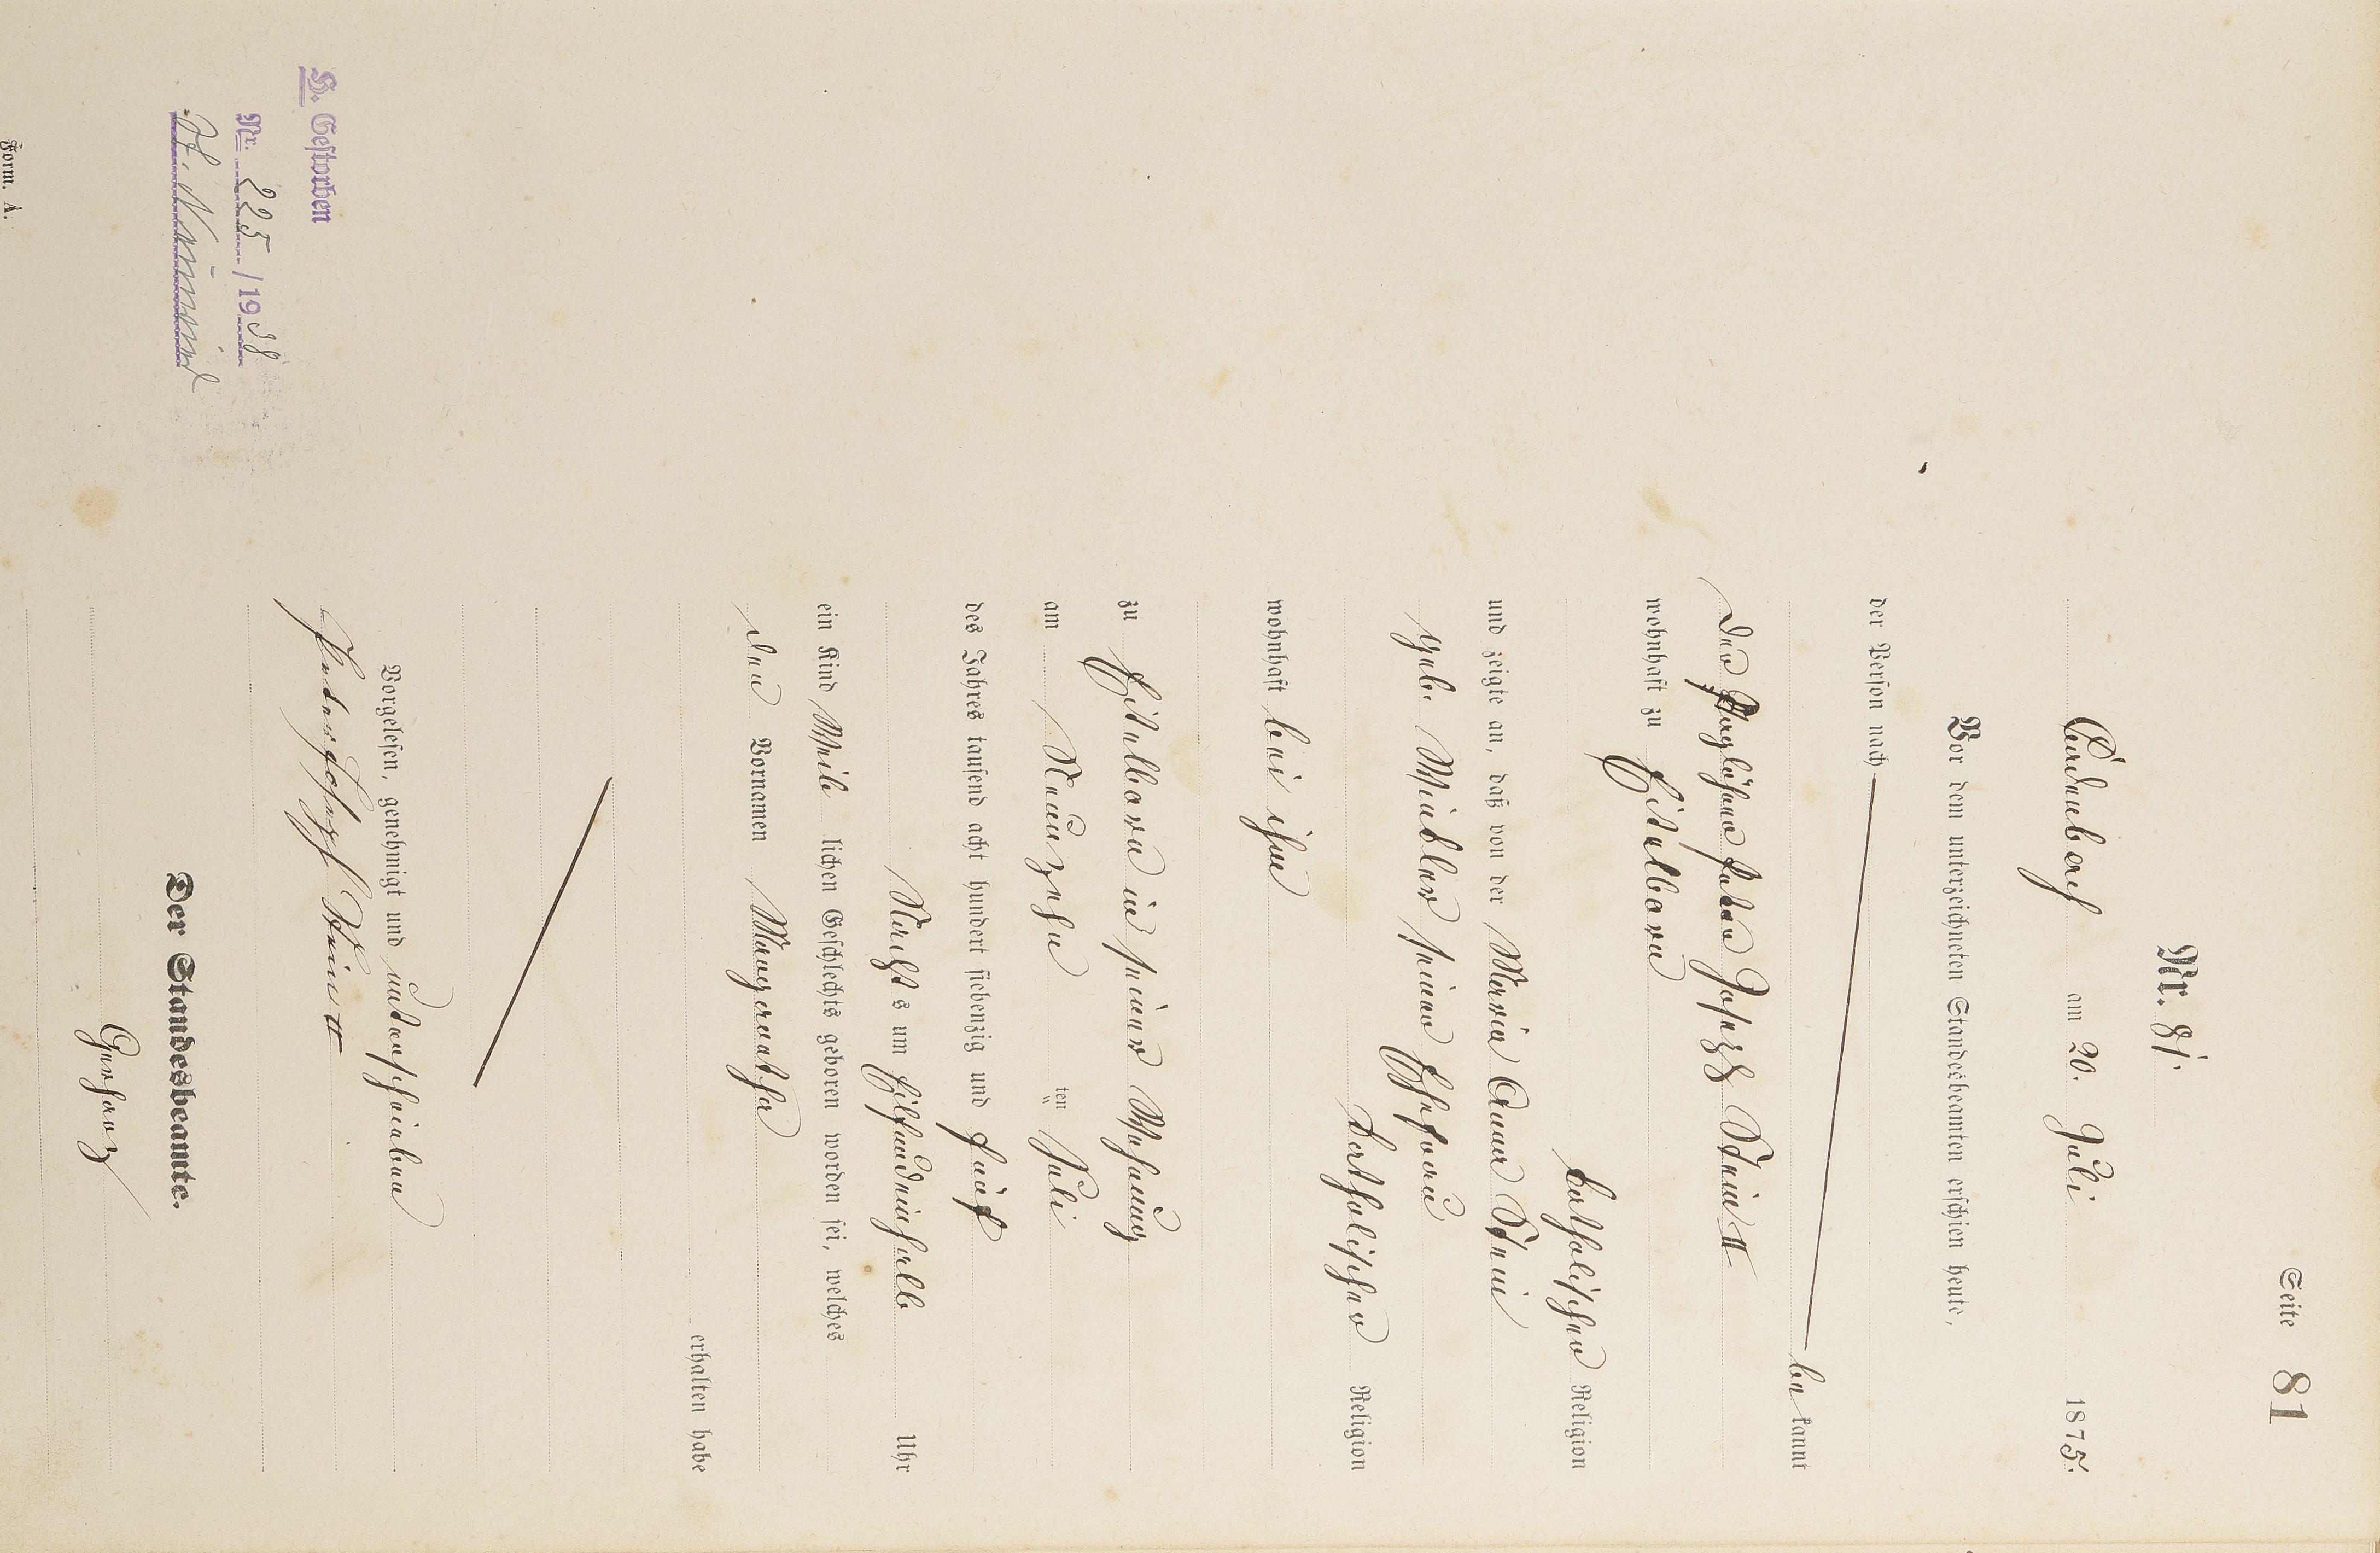 Seite 81
Nr. 81.
Cardenbach am 20. Juli 1875.
Vor dem unterzeichneten Standesbeamten erschien heute,
der Person nach
bekannt
der Peter Joseph Stein II
wohnhaft zu Eitelborn
katholischer Religion
und zeigte an, daß von der Maria Anna Stein
geb. seiner Ehefrau
katholischer Religion
wohnhaft bei ihm
zu Eitelborn in seiner Wohnung
am Neunzehn ten Juli
des Jahres tausend acht hundert siebenzig und fünf
Nachts um Uhr
ein Kind weiblichen Geschlechts geboren worden sei, welches
den Vornamen Margaretha
erhalten habe
Vorgelesen, genehmigt und unterschrieben
Peter Joseph Stein II
Der Standesbeamte.
Gerharz
H. Gestorben
Nr. 225/1938
St.
Form. A.